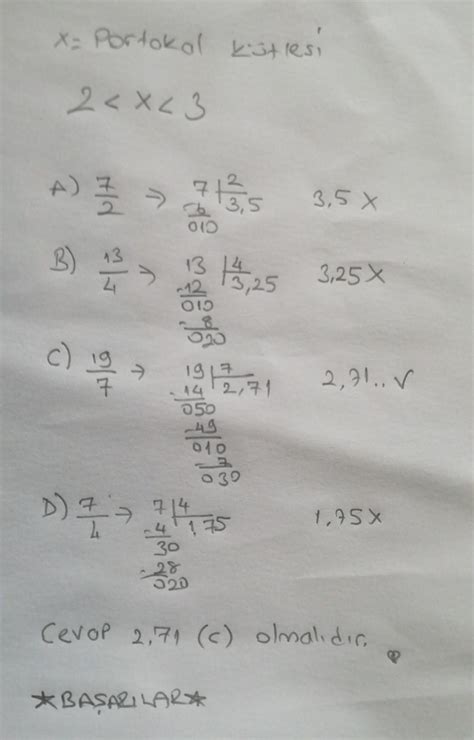 x = Portokal kütlesi
2 < x < 3
A) 7/2 → 7 | 2 3,5 3,5 X
6
010
B) 13/4 → 13 | 4 3,25 3,25 X
-12
010
-8
020
C) 19/7 → 19 | 7 2,71 2,71.. √
-14
050
-49
010
-7
030
D) 7/4 → 7 | 4 1,75 1,75 X
-4
30
-28
020
Cevap 2,71 (c) olmalıdır.
★BAŞARILAR★